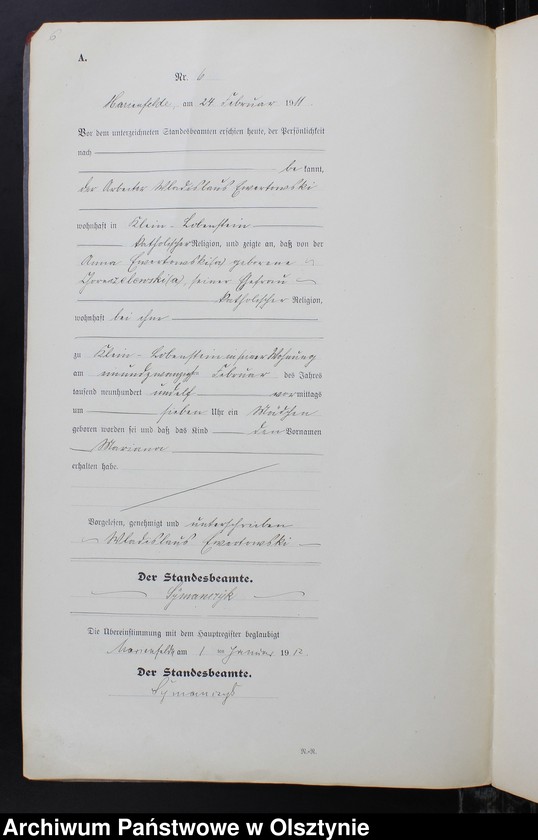 6
A.
Nr. 6
Marienfelde, am 24. Februar 1911.
Vor dem unterzeichneten Standesbeamten erschien heute, der Persönlichkeit
nach
be kannt,
der Arbeiter Wladislaus Ewertowski
wohnhaft in Klein-Lobenstein
katholischer Religion, und zeigte an, daß von der
Anna Ewertowski(a) geborene
seiner Ehefrau
katholischer Religion,
wohnhaft bei ihm
zu Klein-Lobenstein in seiner Wohnung
am Februar des Jahres
tausend neunhundert und elf vor mittags
um sieben Uhr ein Mädchen
geboren worden sei und daß das Kind den Vornamen
Marianna
erhalten habe.
Vorgelesen, genehmigt und unterschrieben
Wladislaus Ewertowski
Der Standesbeamte.
Symanczyk
Die Übereinstimmung mit dem Hauptregister beglaubigt
Marienfelde am 1. Januar 1912.
Der Standesbeamte.
Symanczyk
N.-R.
Archiwum Państwowe w Olsztynie